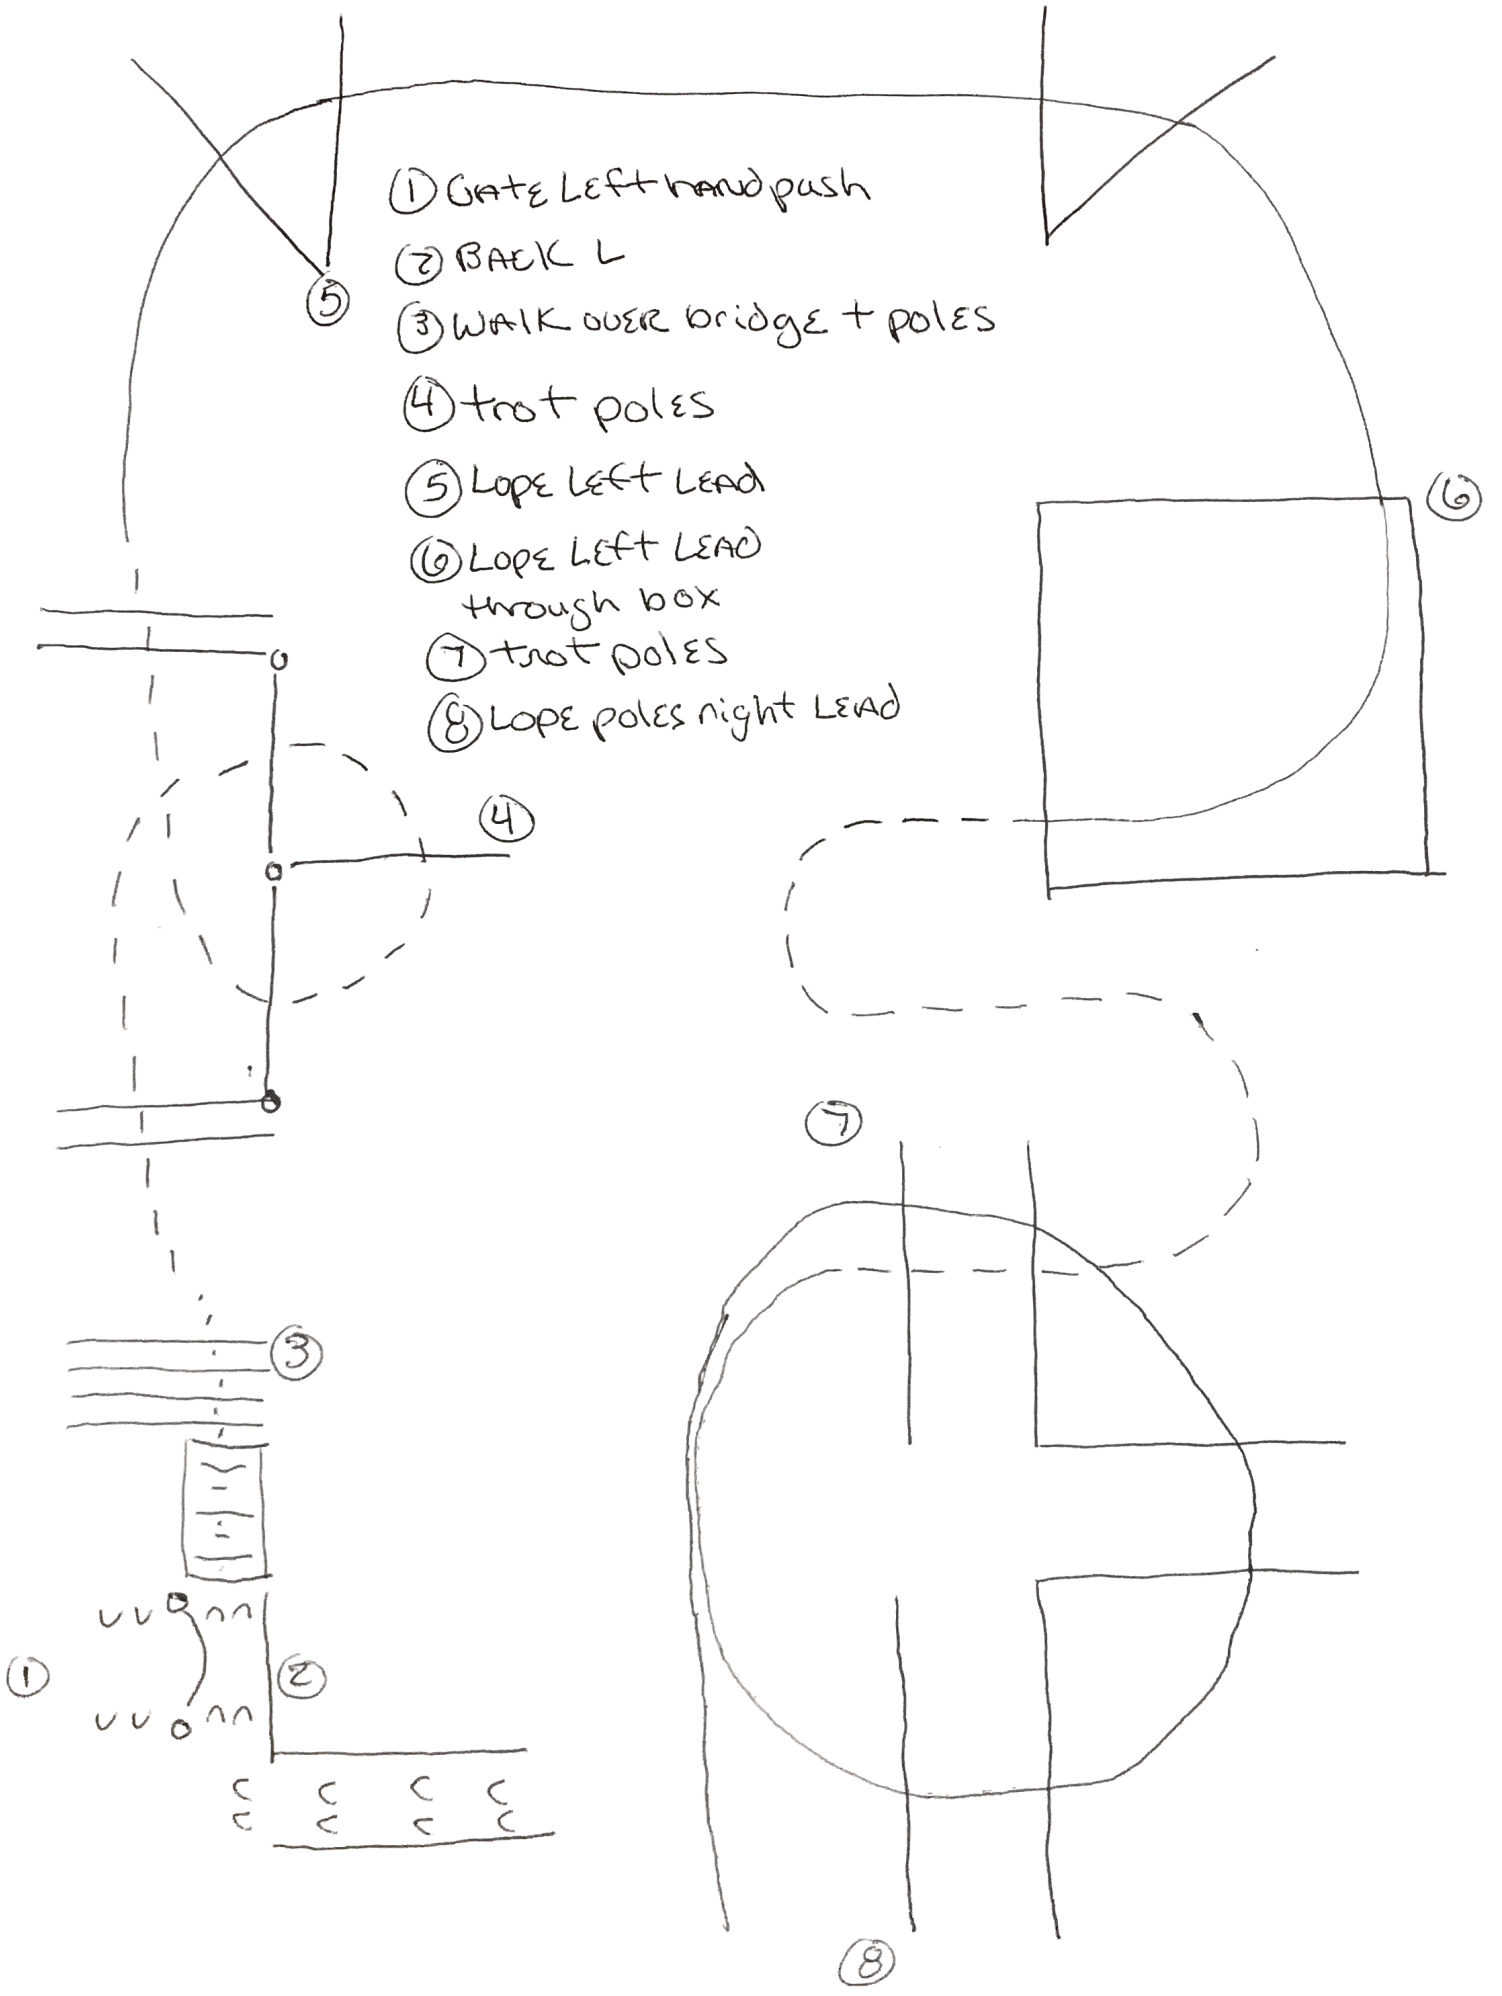 ① GATE LEft hand push
② BACK L
③ WALK OVER bridge + poles
④ trot poles
⑤ LOPE LEft LEAD
⑥ LOPE LEft LEAD
through box
⑦ trot poles
⑧ LOPE poles right LEAD
⑤
⑥
④
⑦
③
①
②
⑧